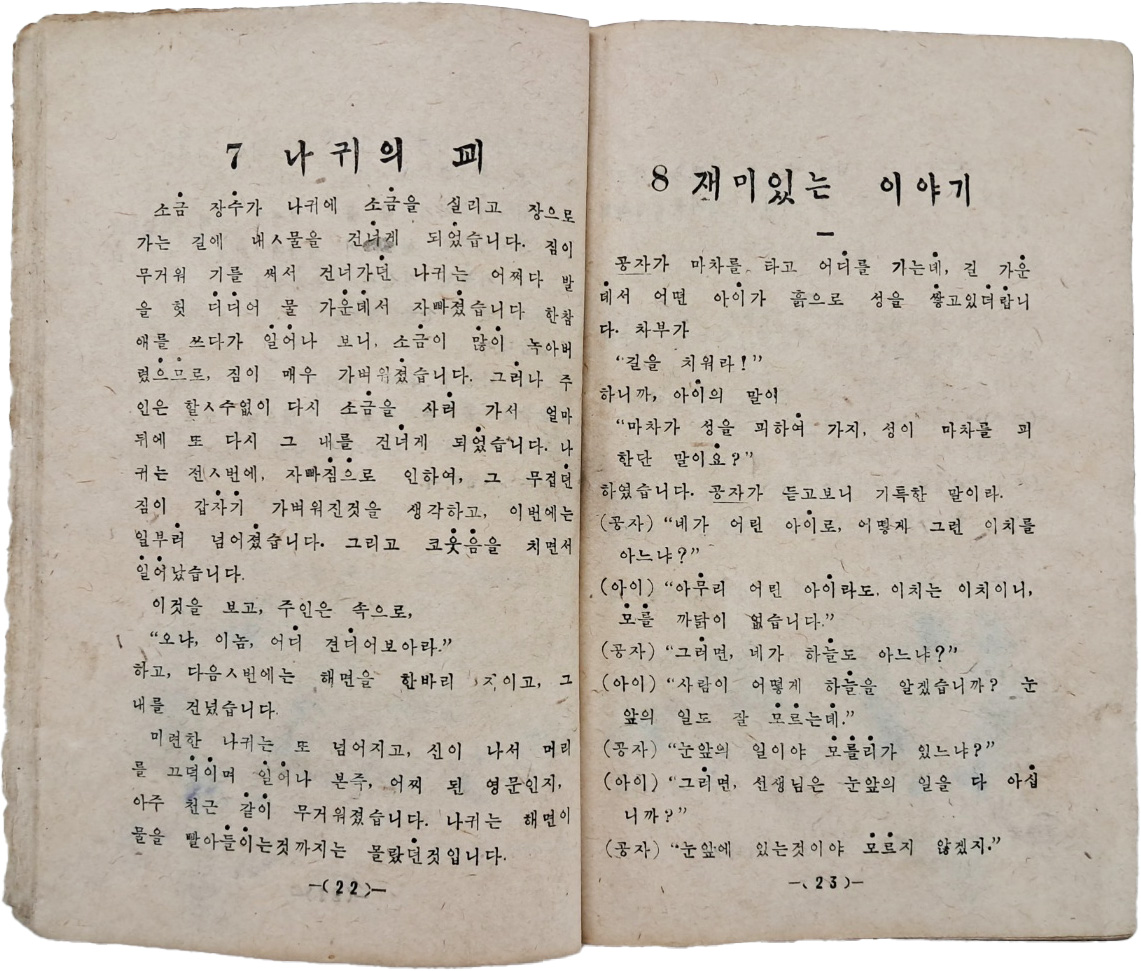 7 나귀의 꾀
소금 장수가 나귀에 소금을 실리고 장으로
가는 길에 내ㅅ물을 건너게 되었습니다. 짐이
무거워 기를 써서 건너가던 나귀는 어쩌다 발
을 헛 디디어 물 가운데서 자빠졌습니다 한참
애를 쓰다가 일어나 보니, 소금이 많이 녹아버
렸으므로, 짐이 매우 가벼워졌습니다. 그러나 주
인은 할ㅅ수없이 다시 소금을 사러 가서 얼마
뒤에 또 다시 그 내를 건너게 되었습니다. 나
귀는 전ㅅ번에, 자빠짐으로 인하여, 그 무겁던
짐이 갑자기 가벼워진것을 생각하고, 이번에는
일부러 넘어졌습니다. 그리고 코웃음을 치면서
일어났습니다.
이것을 보고, 주인은 속으로,
“오냐, 이놈, 어디 견디어보아라.”
하고, 다음ㅅ번에는 해면을 한바리 이고, 그
내를 건넜습니다.
미련한 나귀는 또 넘어지고, 신이 나서 머리
를 끄덕이며 일어나 본즉, 어찌 된 영문인지,
아주 천근 같이 무거워졌습니다. 나귀는 해면이
물을 빨아들이는것까지는 몰랐던것입니다.
—(22)—
8 재미있는 이야기
一
공자가 마차를 타고 어디를 가는데, 길 가운
데서 어떤 아이가 흙으로 성을 쌓고있더랍니
다. 차부가
“길을 치워라!”
하니까, 아이의 말이
“마차가 성을 피하여 가지, 성이 마차를 피
한단 말이요?”
하였습니다. 공자가 듣고보니 기특한 말이라.
(공자) “네가 어린 아이로, 어떻게 그런 이치를
아느냐?”
(아이) “아무리 어린 아이라도, 이치는 이치이니,
모를 까닭이 없습니다.”
(공자) “그러면, 네가 하늘도 아느냐?”
(아이) “사람이 어떻게 하늘을 알겠습니까? 눈
앞의 일도 잘 모르는데.”
(공자) “눈앞의 일이야 모를리가 있느냐?”
(아이) “그러면, 선생님은 눈앞의 일을 다 아십
니까?”
(공자) “눈앞에 있는것이야 모르지 않겠지.”
—(23)—